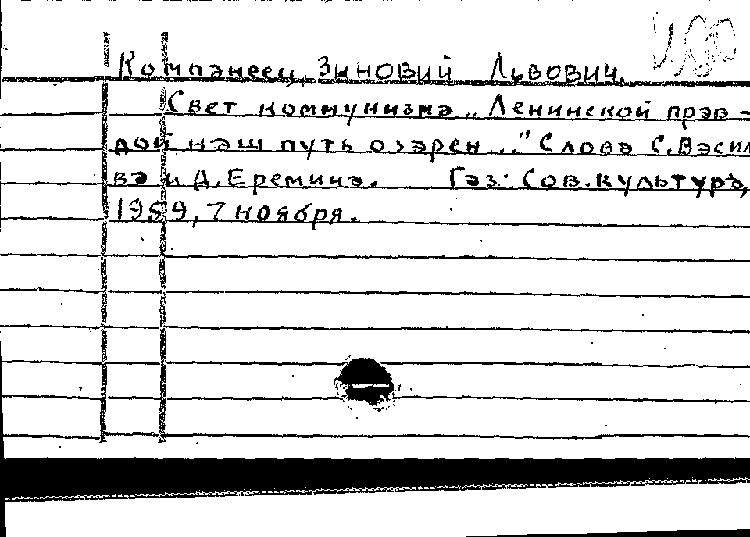 Компанеец, Зиновий Львович.
Свет коммунизма „Ленинской прав-
дой наш путь озарен..." Слова С. Васил
ва и Д. Еремина. Газ. Сов. культура,
1959, 7 ноября.